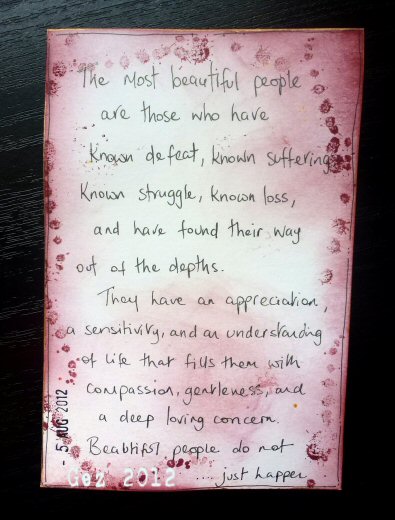 The most beautiful people
are those who have
known defeat, known suffering,
known struggle, known loss,
and have found their way
out of the depths.
They have an appreciation,
a sensitivity, and an understanding
of life that fills them with
compassion, gentleness, and
a deep loving concern.
Beautiful people do not
... just happen
- 5 AUG 2012
Gez 2012